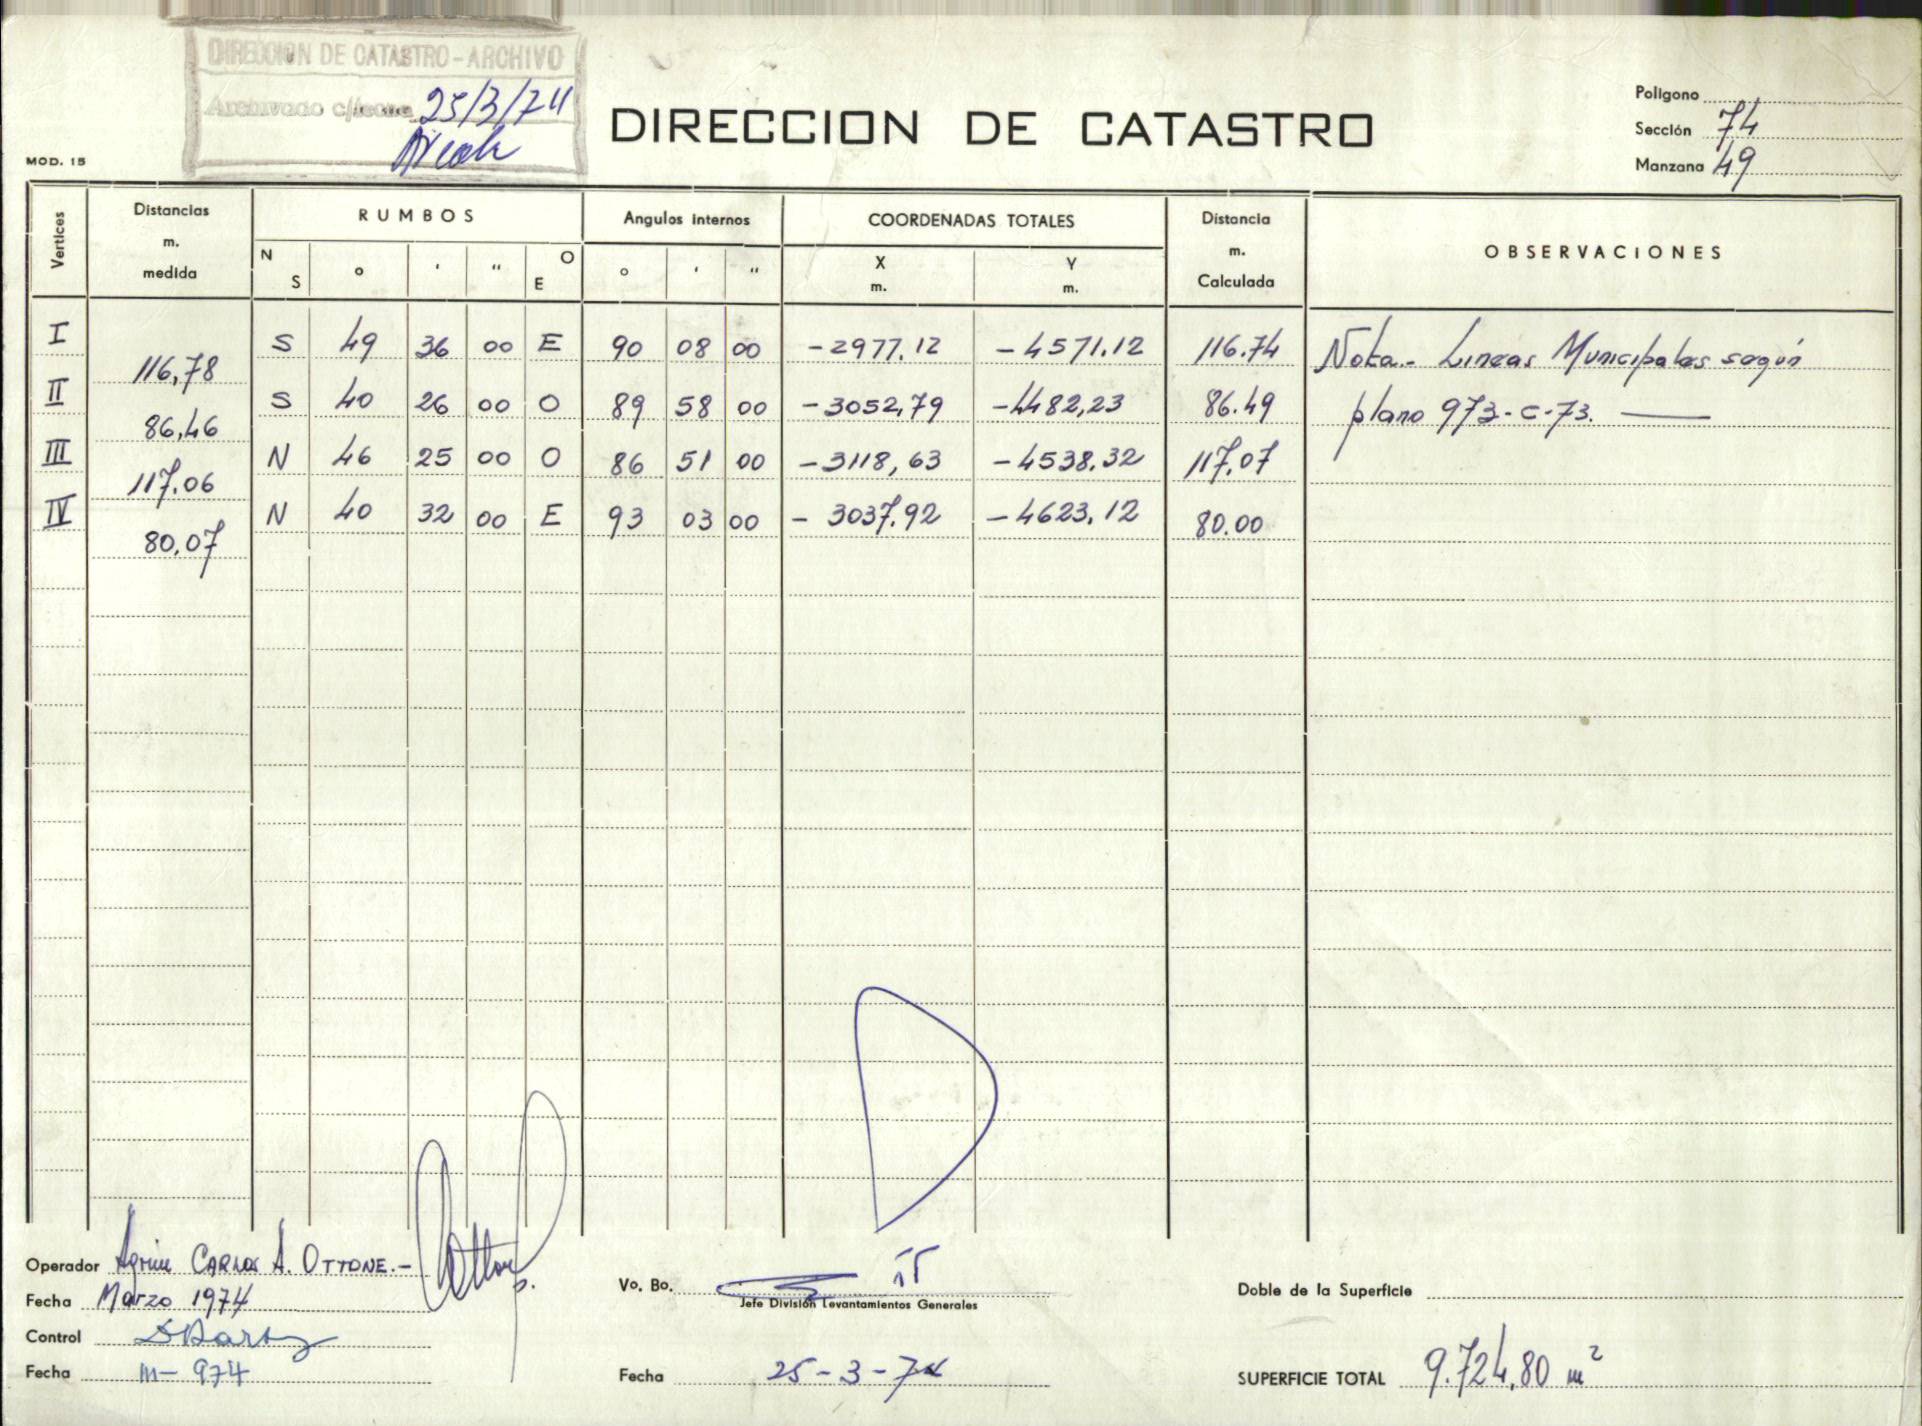 DIRECCION DE CATASTRO - ARCHIVO
Archivado c/fecha 25/3/74
DIRECCION DE CATASTRO
Poligono
Sección 74
Manzana 49
MOD. 15
Vertices Distancias m. medida RUMBOS N S ° ' " O E Angulos internos ° ' " COORDENADAS TOTALES X m. Y m. Distancia m. Calculada OBSERVACIONES
I S 49 36 00 E 90 08 00 -2977,12 -4571.12 116.74 Nota.- Lineas Municipales según
116,78
II S 40 26 00 O 89 58 00 -3052,79 -4482,23 86.49 plano 973-C-73.
86,46
III N 46 25 00 O 86 51 00 -3118,63 -4538.32 117.07
117.06
IV N 40 32 00 E 93 03 00 - 3037.92 -4623.12 80.00
80,07
Operador Agrim CARLOS A. OTTONE.-
Fecha Marzo 1974
Control
Fecha III- 974
Vo. Bo.
Jefe División Levantamientos Generales
Fecha 25-3-74
Doble de la Superficie
SUPERFICIE TOTAL 9.724,80 m²